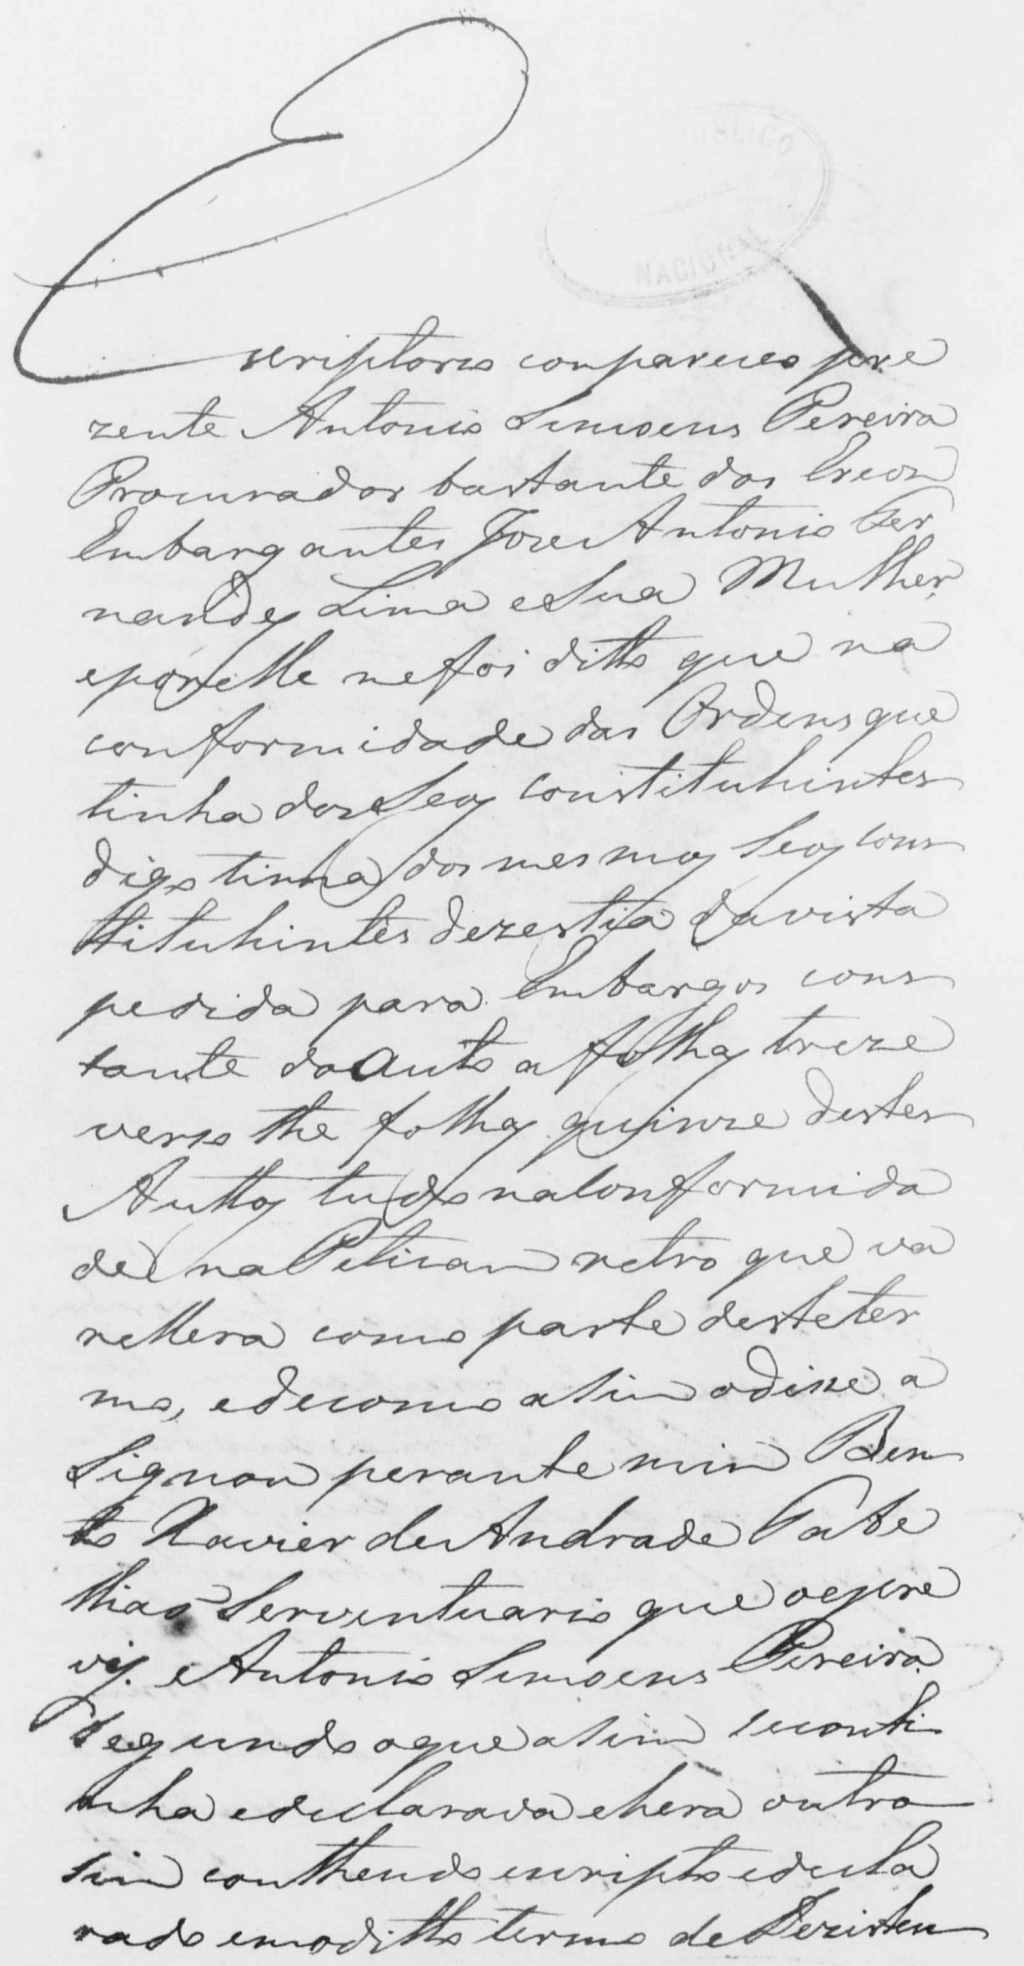 PUBLICO
NACIONAL
Escriptorio conpareceo pre
zente Antonio Simoens Pereira
Procurador bastante dos Ereos
Embargantes Joze Antonio Fer
nandes Lima e Sua Mulher,
eporelle mefoi ditto que na
conformidade das Ordens que
tinha dos Seos constituhintes
digo tinha dos mesmos Seos cons
tituhintes dezestia davista
pedida para Embargos cons
tante do Auto a folhas treze
verso the folhas quinze destes
Auttos tudo naConformida
de na Peticam retro que va
rellera como parte desteter
mo, edecomo asim odisse a
Signou perante mim Ben
to Xavier de Andrade Tabe
lliaõ Serventuario que oescre
vy. e Antonio Simoens Pereira
Segundo oque asim seconti
nha edeclarava ehera outro
sim conthendo escripto edecla
rado emoditto termo de Dezisten